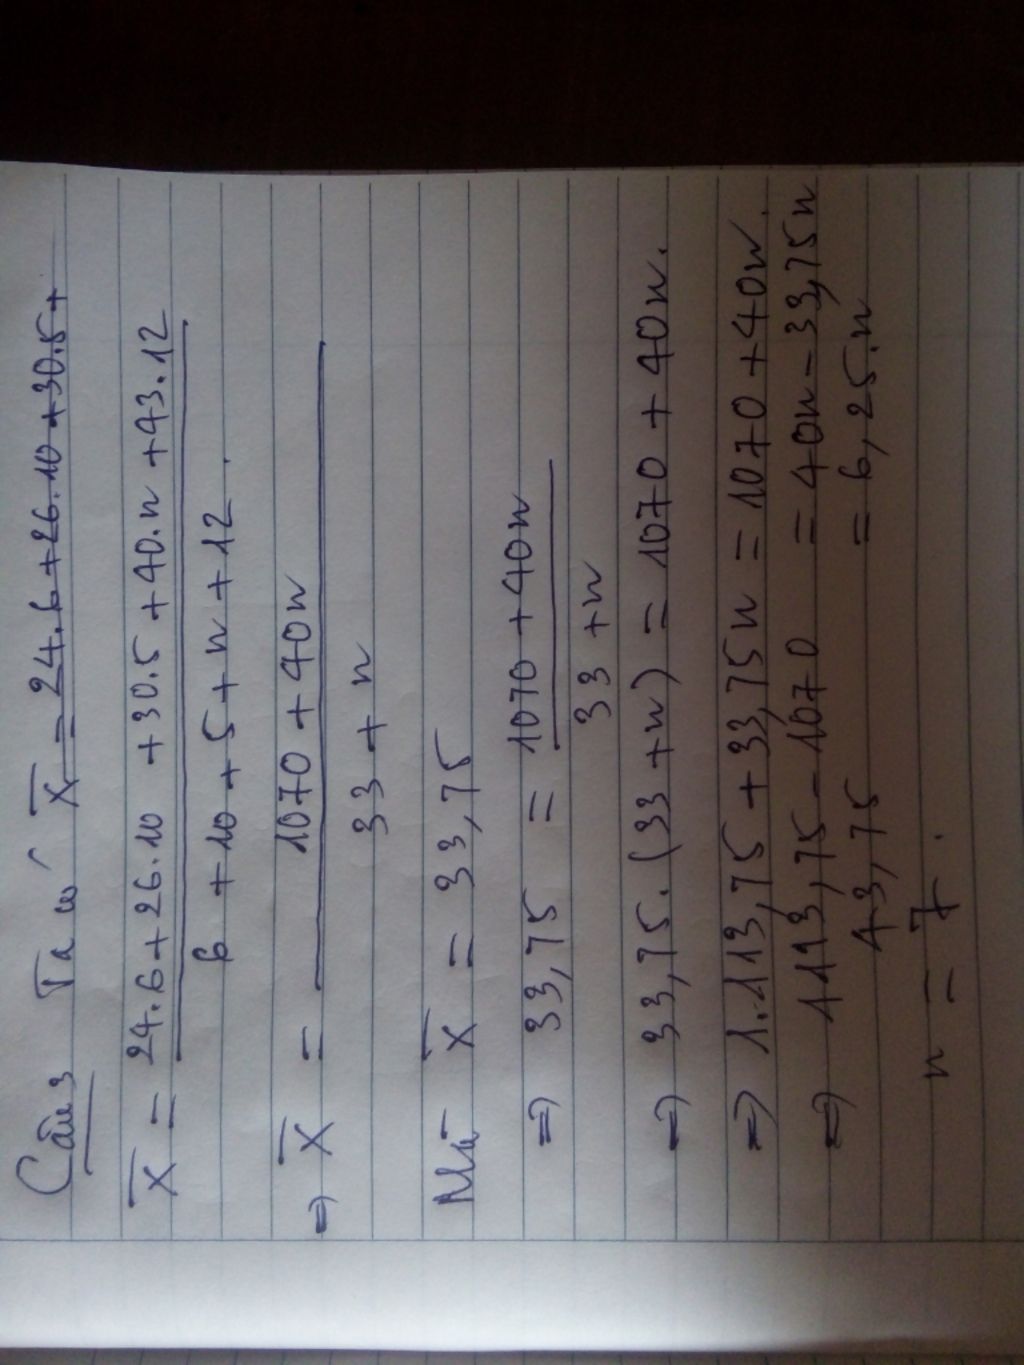 Câu 3 Ta có X̄ = 24.6+26.10+30.5+
X̄ = 24.6+26.10 +30.5+40.n+43.12
6+10+5+n+12.
⇒ X̄ = 1070+40n
33+n
Mà X̄ = 33,75
⇒ 33,75 = 1070+40n
33+n
⇒ 33,75.(33+n) = 1070+40n.
⇒ 1.113,75+33,75n = 1070+40n.
⇒ 1113,75-1070 = 40n-33,75n
43,75 = 6,25.n
n = 7.